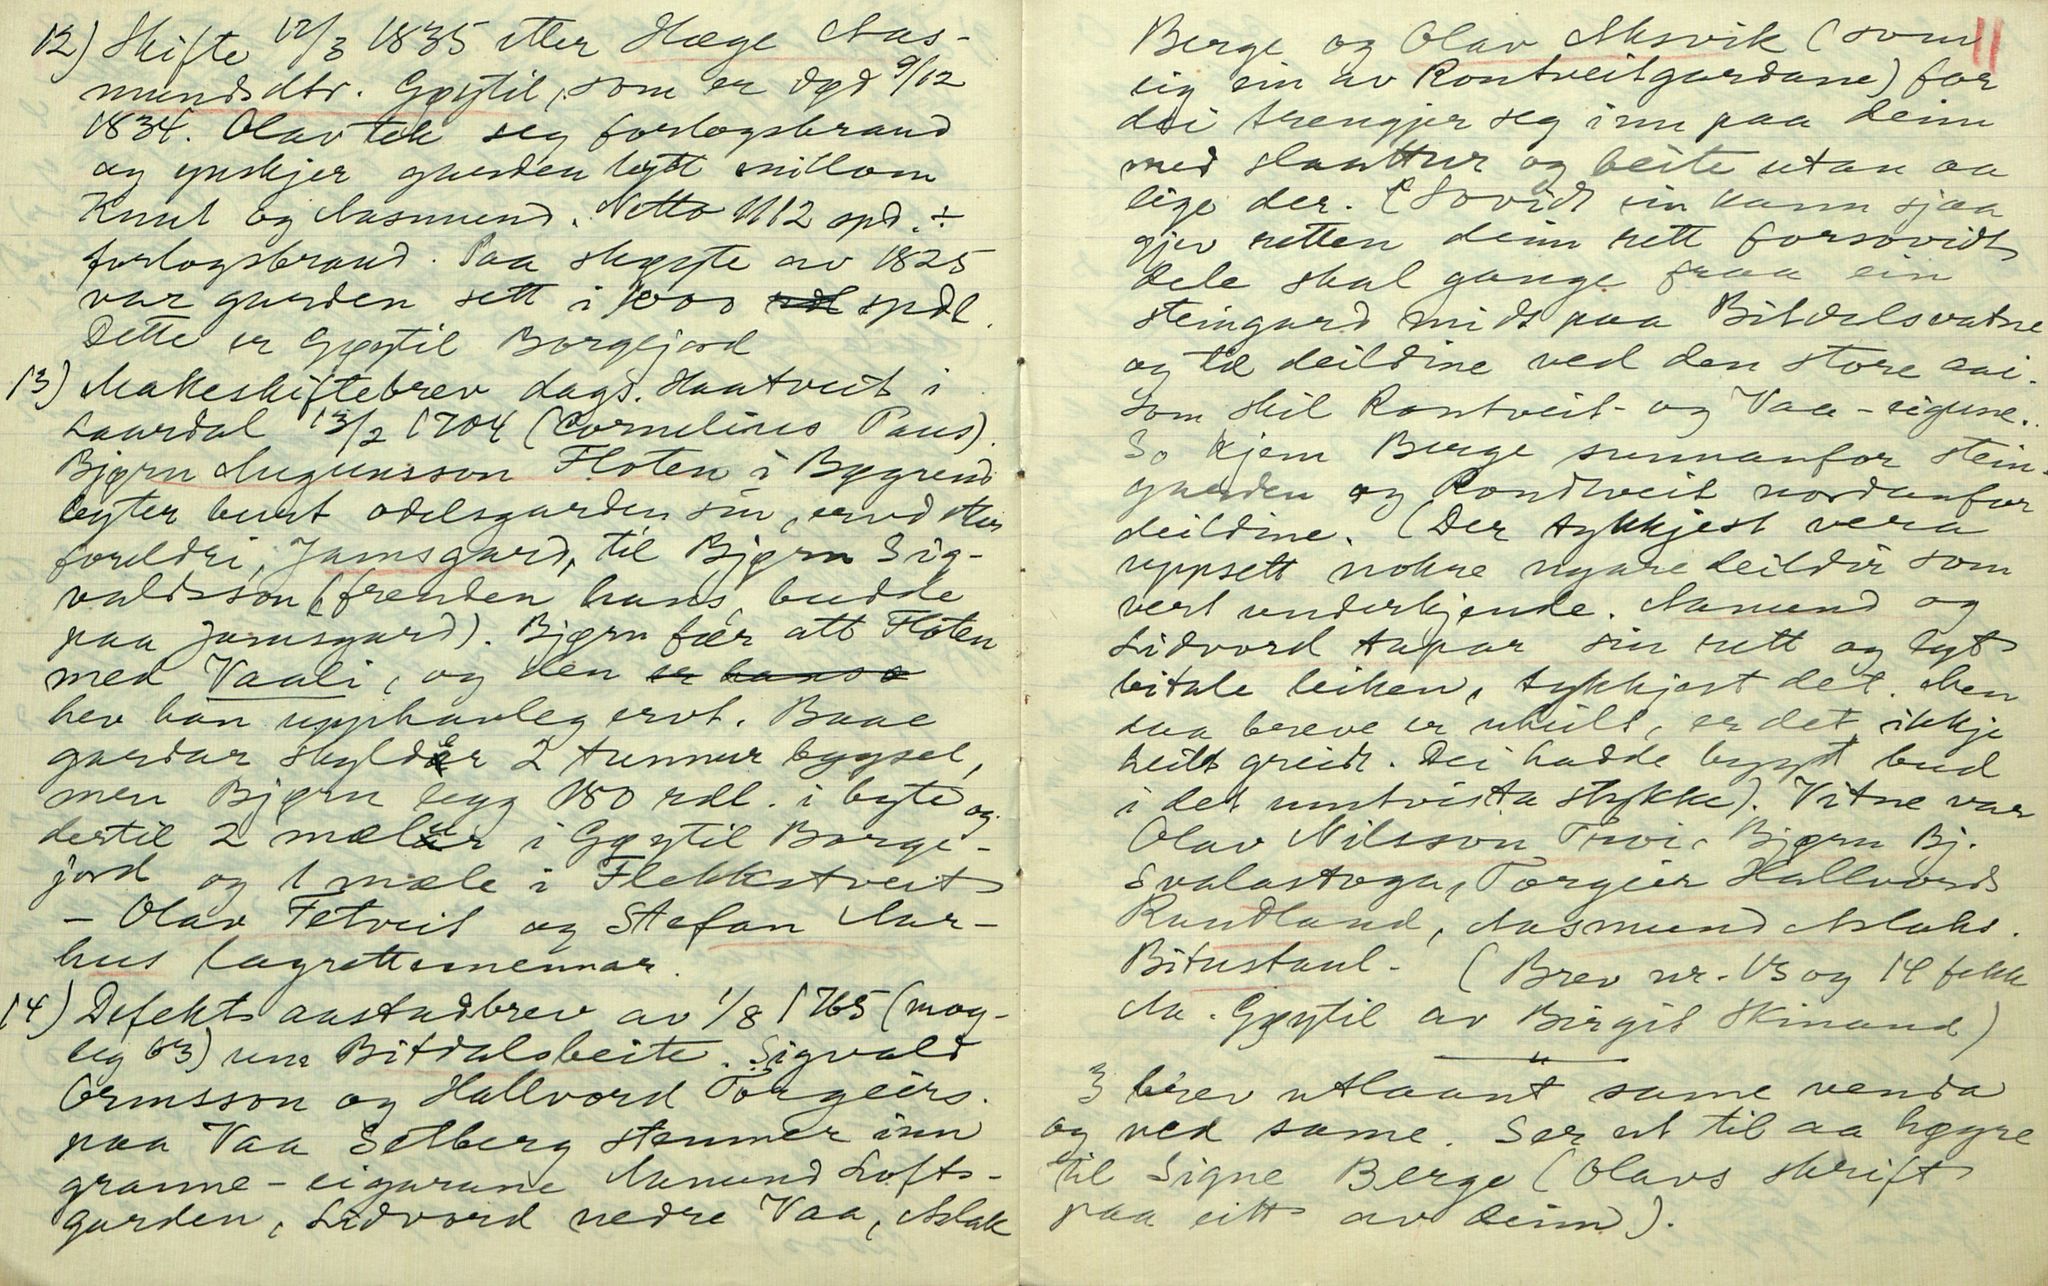 12) Skifte 12/3 1835 etter Hæge Aas-
mundsdtr. Gøytil, som er død 9/12
1834. Olav tek seg forlogsbraud
og ynskjer garden bytt millom
Knut og Aasmund. Netto 1112 spd. ÷
forlogsbraud. Paa skøyte av 1825
var garden sett i 1000 rdl spdl.
Dette er Gøytil Borgejord
13) Makeskiftebrev dags. Haatveit i
Laurdal 13/2 1704 (Cornelius Paus).
Bjørn Augunsson Floten i Bygrend
byter burt odelsgarden sin, ervd etter
foreldri, Jamsgard, til Bjørn Sig-
valdsson (frenden hans, budde
paa Jamsgard). Bjørn fær att Floten
med Vaali, og den er hans o
hev han upphavleg ervt. Baae
gardar skylder 2 tunnur bygsel,
men Bjørn legg 180 rdl. i byte og
dertil 2 mælur i Gøytil Borge-
jord og 1 mæle i Flekkstveit
- Olav Fetveit og Stefan Aar-
hus lagrettemennar.
14) Defekt aastadbrev av 1/8 1765 (mog-
leg 63) um Bitdalsbeite. Sigvald
Ormsson og Hallvord Torgeirs.
paa Vaa Selberg stemner inn
granne-eigarane Aamund Lofts-
garden, Lidvord nedre Vaa, Aslak
11
Berge og Olav Aksvik (som
eig ein av Rontveitgardane) for
dei trengjer seg inn paa deim
med slaattur og beite utan aa
lige der. (Sovidt ein kann sjaa
gjev retten deim rett forsovidt
dele skal gange fraa ein
steingard midt paa Bitdalsvatne
og til deildine ved den store aai.
som skil Rontveit- og Vaa-eigune.
So kjem Berge sunnanfor stein-
garden og Rondtveit nordanfor
deildine. (Der tykkjest vera
uppsett nokre nyare deildir som
vert underkjende. Aamund og
Lidvord tapar sin rett og lyt
bitale leiken, tykkjest det. Men
daa breve er uheilt, er det ikkje
heilt greidt. Dei hadde bygt bud
i det umtvista stykke). Vitne var
Olav Nilsson Trovi, Bjørn Bj.
Svalastoga, Torgeir Hallvords
Raudland, Aasmund Aslaks.
Bitustaul. (Brev nr. 13 og 14 fekk
Aa. Gøytil av Birgit Skinand)
3 brev utlaant same venda
og ved same. Ser ut til aa høyre
til Signe Berge (Olavs skrift
paa eitt av deim).